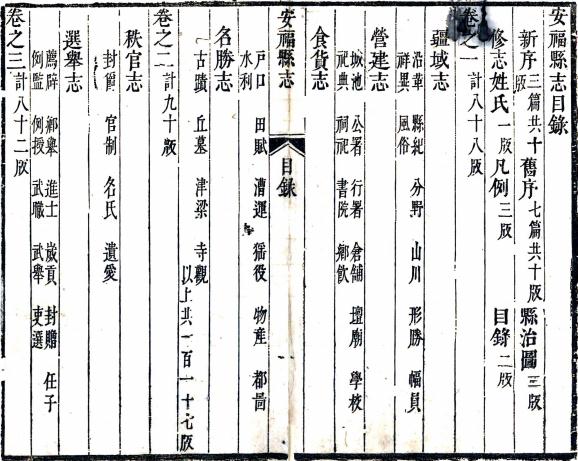 安福縣志目錄
新序三篇共十版 舊序七篇共十版 縣治圖三版
修志姓氏一版 凡例三版 目錄二版
卷之一計八十八版
疆域志
沿革 縣紀 分野 山川 形勝 幅員
祥異 風俗
營建志
城池 公署 行署 倉舖 壇廟 學校
祀典 祠祀 書院 鄉飲
食貨志
安福縣志 目錄
戶口 田賦 漕運 徭役 物産 都啚
水利
名勝志
古蹟 丘墓 津梁 寺觀 以上共一百一十七版
卷之二計九十版
秩官志
封爵 官制 名氏 遺愛
選舉志
薦辟 鄉舉 進士 歲貢 封贈 任子
例監 例援 武職 武舉 吏選
卷之三計八十二版